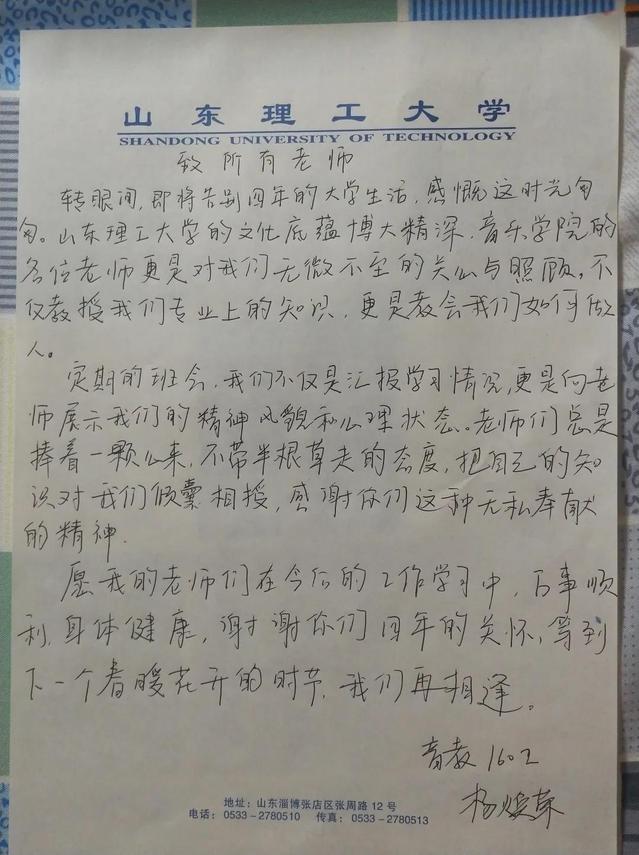 山东理工大学
SHANDONG UNIVERSITY OF TECHNOLOGY
致所有老师
转眼间,即将告别四年的大学生活,感慨这时光匆
匆。山东理工大学的文化底蕴博大精深,音乐学院的
各位老师更是对我们无微不至的关心与照顾,不
仅教授我们专业上的知识,更是教会我们如何做
人。
定期的班会,我们不仅是汇报学习情况,更是向老
师展示我们的精神风貌和心理状态。老师们总是
捧着一颗心来,不带半根草走的态度,把自己的知
识对我们倾囊相授,感谢你们这种无私奉献
的精神.
愿我的老师们在今后的工作学习中,万事顺
利,身体健康,谢谢你们四年的关怀,等到
下一个春暖花开的时节,我们再相逢。
音教1602
地址:山东淄博张店区张周路 12 号
电话:0533-2780510 传真:0533-2780513